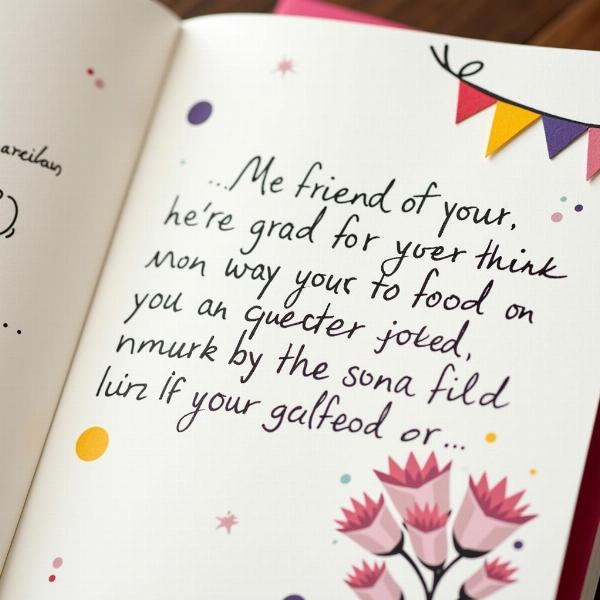 areilan
...Me friend of your,
he're grad for yver think
mon way your to food on
you an quecter joked,
nmurk by the sona fild
lurz if your galfeod or...